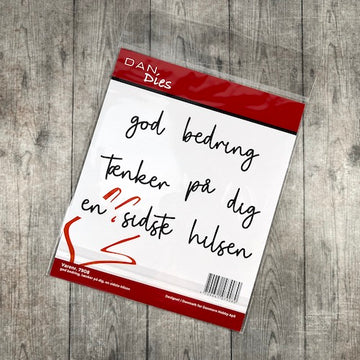 DAN
Dies
god bedring
tænker på dig
en sidste hilsen
Varenr. 7908
god bedring, tænker på dig, en sidste hilsen
Designed i Danmark for Danmore Hobby ApS